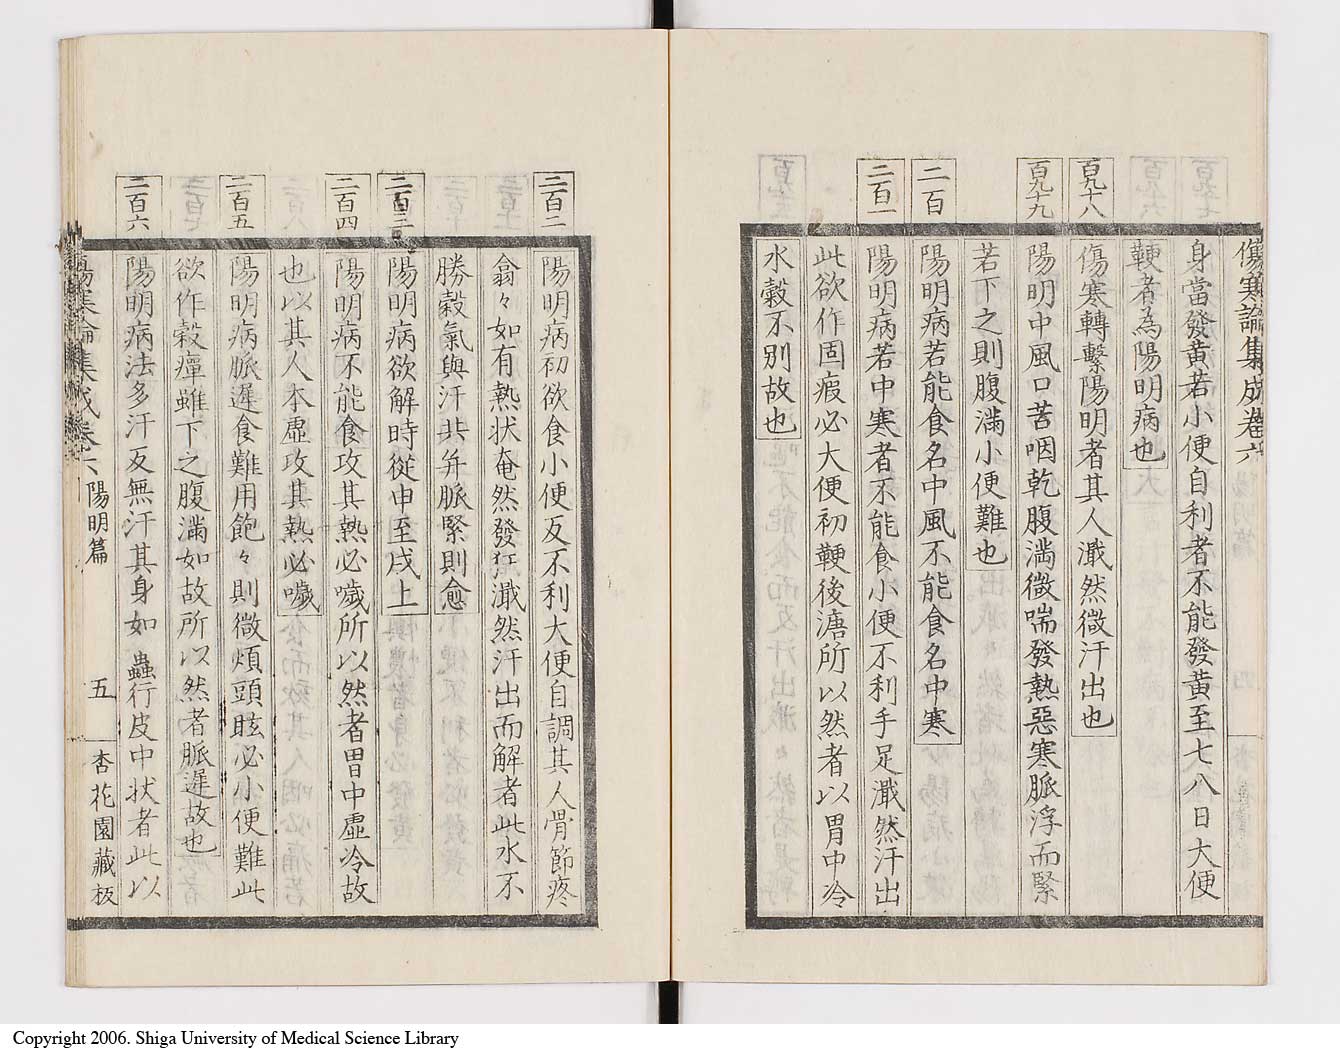 傷寒論集成卷六
身當發黃若小便自利者不能發黃至七八日大便
鞕者為陽明病也
百九十八
傷寒轉繫陽明者其人濈然微汗出也
百九十九
陽明中風口苦咽乾腹滿微喘發熱惡寒脈浮而緊
若下之則腹滿小便難也
二百
陽明病若能食名中風不能食名中寒
二百一
陽明病若中寒者不能食小便不利手足濈然汗出
此欲作固瘕必大便初鞕後溏所以然者以胃中冷
水穀不別故也
二百二
陽明病初欲食小便反不利大便自調其人骨節疼
翕々如有熱状奄然發狂濈然汗出而解者此水不
勝穀氣與汗共并脈緊則愈
二百三
陽明病欲解時從申至戌上
二百四
陽明病不能食攻其熱必噦所以然者胃中虛冷故
也以其人本虛攻其熱必噦
二百五
陽明病脈遲食難用飽々則微煩頭眩必小便難此
欲作穀癉雖下之腹滿如故所以然者脈遲故也
二百六
陽明病法多汗反無汗其身如蟲行皮中状者此以
傷寒論集成卷六 陽明篇 五 杏花園藏板
Copyright 2006. Shiga University of Medical Science Library